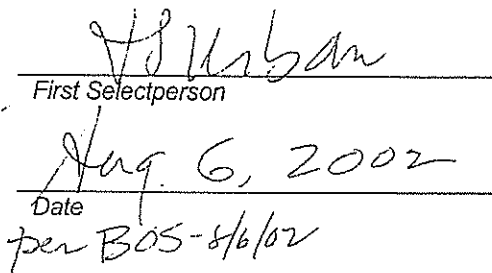 Urban
First Selectperson
Aug. 6, 2002
Date
per BOS-8/6/02